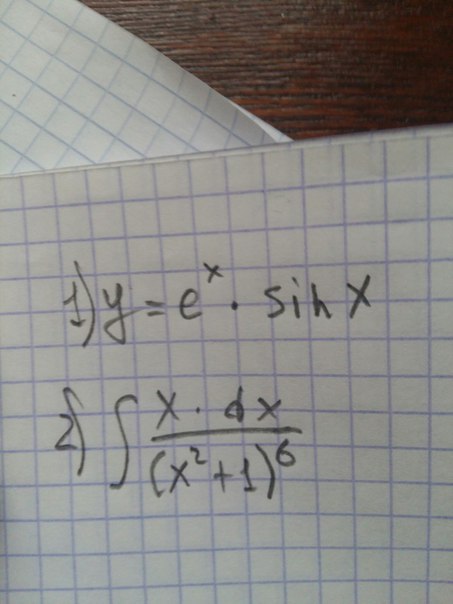 1) y = e^x · sin x
2) ∫ x · dx / (x² + 1)⁶